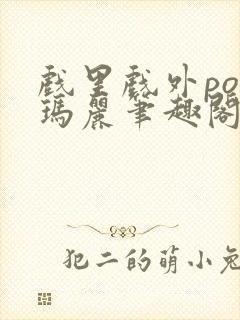 戲里戲外po
瑪麗筆趣閣
犯二的萌小兔